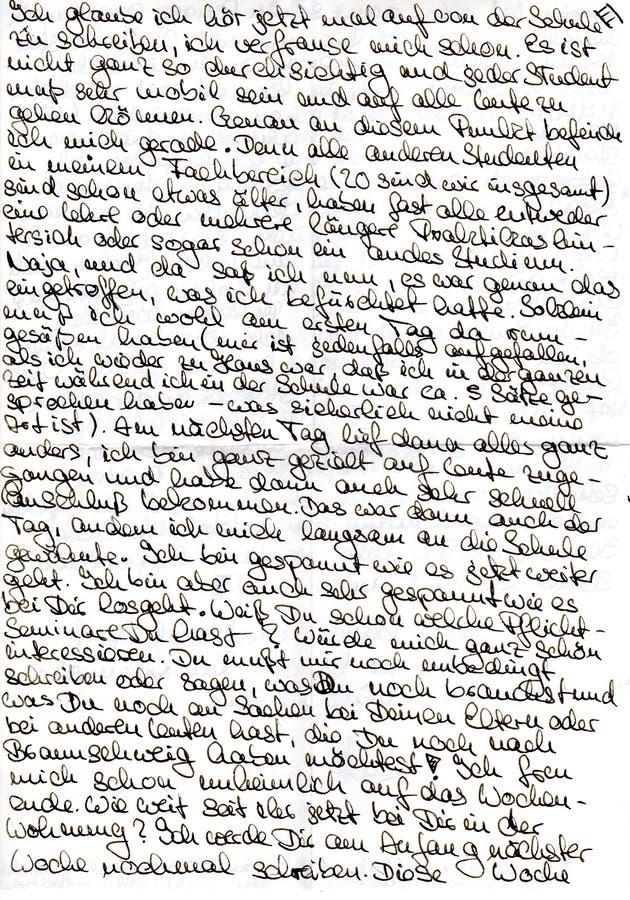 Ich glaube ich hör jetzt mal auf von der Schule
zu schreiben, ich verfranse mich schon. Es ist
nicht ganz so durchsichtig und jeder Student
muß sehr mobil sein und auf alle Leute zu
gehen können. Genau an diesem Punkt befinde
ich mich gerade. Denn alle anderen Studenten
in meinem Fachbereich (20 sind wir insgesamt)
sind schon etwas älter, haben fast alle entweder
eine Lehre oder mehrere längere Praktikas hin-
tersich oder sogar schon ein andes Studium.
Naja, und da saß ich nun, es war genau das
eingetroffen, was ich befürchtet hatte. So klein
muß ich wohl am ersten Tag da rum-
gesäßen haben (mir ist jedenfalls aufgefallen,
als ich wieder zu Haus war, daß ich in der ganzen
Zeit während ich in der Schule war ca. 5 Sätze ge-
sprochen haben - was sicherlich nicht meine
Art ist). Am nächsten Tag lief dann alles ganz
anders, ich bin ganz gezielt auf Leute zuge-
gangen und habe dann auch sehr schnell
Anschluß bekommen. Das war dann auch der
Tag, andem ich mich langsam an die Schule
gewöhnte. Ich bin gespannt wie es jetzt weiter
geht. Ich bin aber auch sehr gespannt wie es
bei Dir losgeht. Weißt Du schon welche Pflicht-
Seminare Du hast? Würde mich ganz schön
interessieren. Du mußt mir noch unbedingt
schreiben oder sagen, was Du noch brauchst und
was Du noch an Sachen bei Deinen Eltern oder
bei anderen Leuten hast, die Du noch nach
Braunschweig haben möchtest! Ich freu
mich schon unheimlich auf das Wochen-
ende. Wie weit seit ihr jetzt bei Dir in der
Wohnung? Ich werde Dir am Anfang nächster
Woche nochmal schreiben. Diese Woche